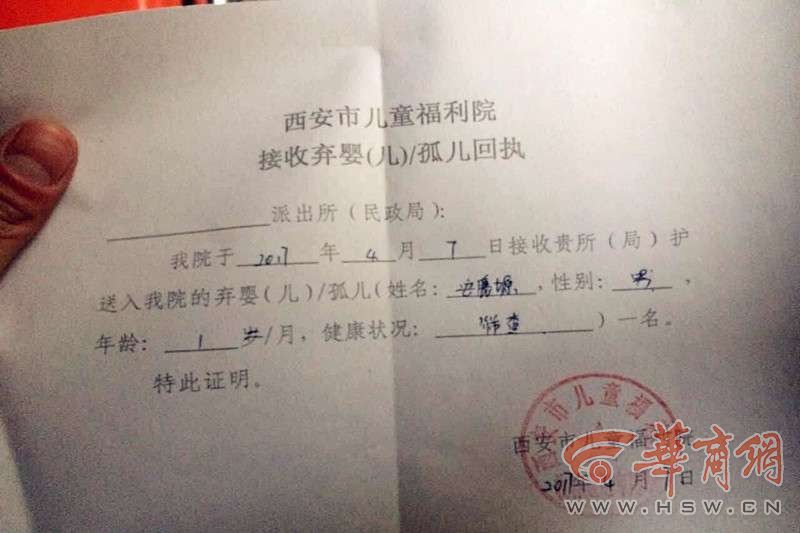 西安市儿童福利院
接收弃婴(儿)/孤儿回执
派出所（民政局）：
我院于 2017 年 4 月 7 日接收贵所（局）护
送入我院的弃婴（儿）/孤儿（姓名： ，性别：男，
年龄： 1 岁/月，健康状况： 筛查 ）一名。
特此证明。
西安市儿童福利院
2017年 4 月 7 日
西安市儿童福
華商網
WWW.HSW.CN